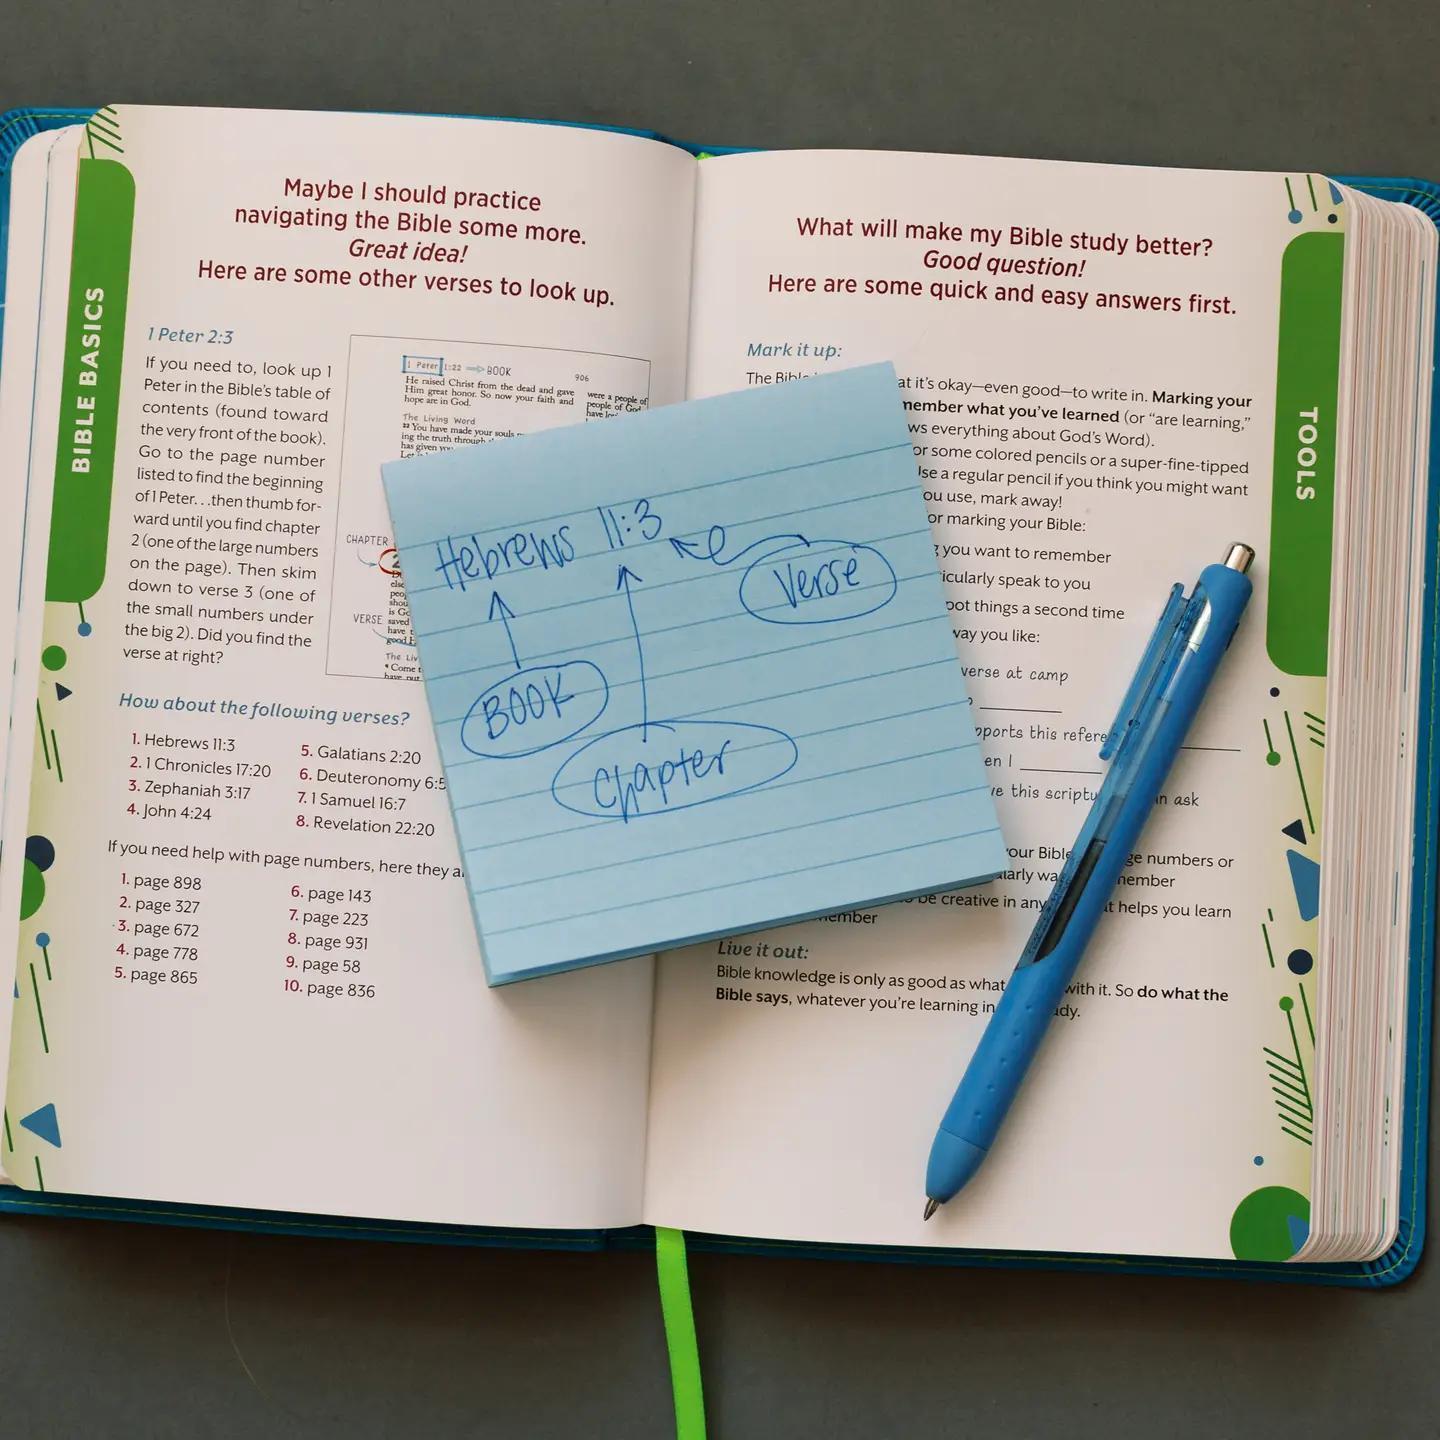 BIBLE BASICS
Maybe I should practice
navigating the Bible some more.
Great idea!
Here are some other verses to look up.
1 Peter 2:3
If you need to, look up 1
Peter in the Bible's table of
contents (found toward
the very front of the book).
Go to the page number
listed to find the beginning
of 1 Peter...then thumb for-
ward until you find chapter
2 (one of the large numbers
on the page). Then skim
down to verse 3 (one of
the small numbers under
the big 2). Did you find the
verse at right?
1 Peter 1:22 BOOK 906
He raised Christ from the dead and gave
Him great honor. So now your faith and
hope are in God.
were a people of
people of God
The Living Word
22 You have made your souls
ing the truth through
has given you
CHAPTER 2
VERSE
saved
have t
good
The Liv
4 Come t
have put
How about the following verses?
1. Hebrews 11:3
2. 1 Chronicles 17:20
3. Zephaniah 3:17
4. John 4:24
5. Galatians 2:20
6. Deuteronomy 6:5
7. 1 Samuel 16:7
8. Revelation 22:20
If you need help with page numbers, here they
1. page 898
2. page 327
3. page 672
4. page 778
5. page 865
6. page 143
7. page 223
8. page 931
9. page 58
10. page 836
Hebrews 11:3
Verse
BOOK
Chapter
TOOLS
What will make my Bible study better?
Good question!
Here are some quick and easy answers first.
Mark it up:
The Bible at it's okay—even good—to write in. Marking your
member what you've learned (or "are learning,"
ws everything about God's Word).
or some colored pencils or a super-fine-tipped
Use a regular pencil if you think you might want
ou use, mark away!
for marking your Bible:
g you want to remember
icularly speak to you
pot things a second time
way you like:
verse at camp
pports this refere
en I
ve this scriptu n ask
your Bible ge numbers or
larly wa member
be creative in any t helps you learn
member
Live it out:
Bible knowledge is only as good as what with it. So do what the
Bible says, whatever you're learning in dy.